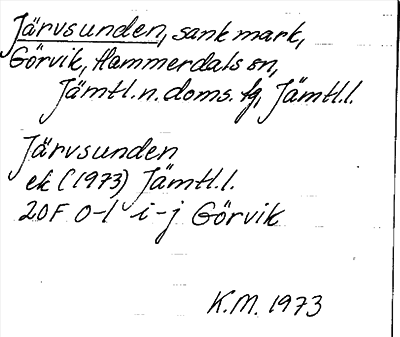 Järvsunden, sank mark,
Görvik, Hammerdals sn,
Jämtl.n.doms.fg, Jämtl.l.
Järvsunden
ek (1973) Jämtl.l.
20F 0-1 i-j Görvik
K.M. 1973